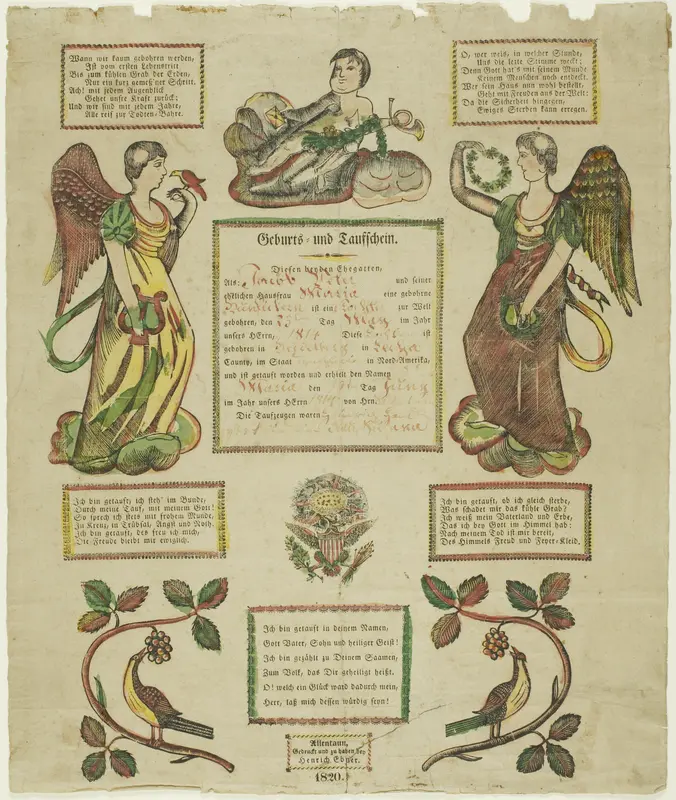 Wann wir kaum gebohren werden,
Ist vom ersten Lebenstritt
Bis zum kühlen Grab der Erden,
Nur ein kurz gemeß'ner Schritt.
Ach! mit jedem Augenblick
Gehet unsre Kraft zurück;
Und wir sind mit jedem Jahre,
Alle reif zur Todten-Bahre.
O, wer weis, in welcher Stunde,
Uns die letzte Stimme weckt;
Denn Gott hat's mit seinem Munde
Keinem Menschen noch entdeckt.
Wer sein Haus nun wohl bestellt,
Geht mit Freuden aus der Welt;
Da die Sicherheit hingegen,
Ewiges Sterben kann erregen.
Geburts- und Taufschein.
Diesen beyden Ehegatten,
Als: Jacob Peter und seiner
ehelichen Hausfrau Maria eine gebohrne
ist ein zur Welt
gebohren, den 25 Tag May im Jahr
unsers HErrn, 1814 Diese ist
gebohren in Heidelberg in Lecha
County, im Staat in Nord-Amerika,
und ist getauft worden und erhielt den Namen
Maria den Tag Juny
im Jahr unsers HErrn 1814 von Hrn.
Die Taufzeugen waren
Ich bin getauft; ich steh' im Bunde,
Durch meine Tauf, mit meinem Gott!
So sprech ich stets mit frohem Munde,
In Kreuz, in Trübsal, Angst und Noth.
Ich bin getauft, des freu ich mich,
Die Freude bleibt mir ewiglich.
Ich bin getauft, ob ich gleich sterbe,
Was schadet mir das kühle Grab?
Ich weiß mein Vaterland und Erbe,
Das ich bey Gott im Himmel hab:
Nach meinem Tod ist mir bereit,
Des Himmels Freud und Feyer-Kleid.
Ich bin getauft in deinem Namen,
Gott Vater, Sohn und heiliger Geist!
Ich bin gezählt zu Deinem Saamen,
Zum Volk, das Dir geheiligt heißt.
O! welch ein Glück ward dadurch mein,
Herr, laß mich dessen würdig seyn!
Allentaun,
Gedruckt und zu haben bey
Henrich Ebner.
1820.